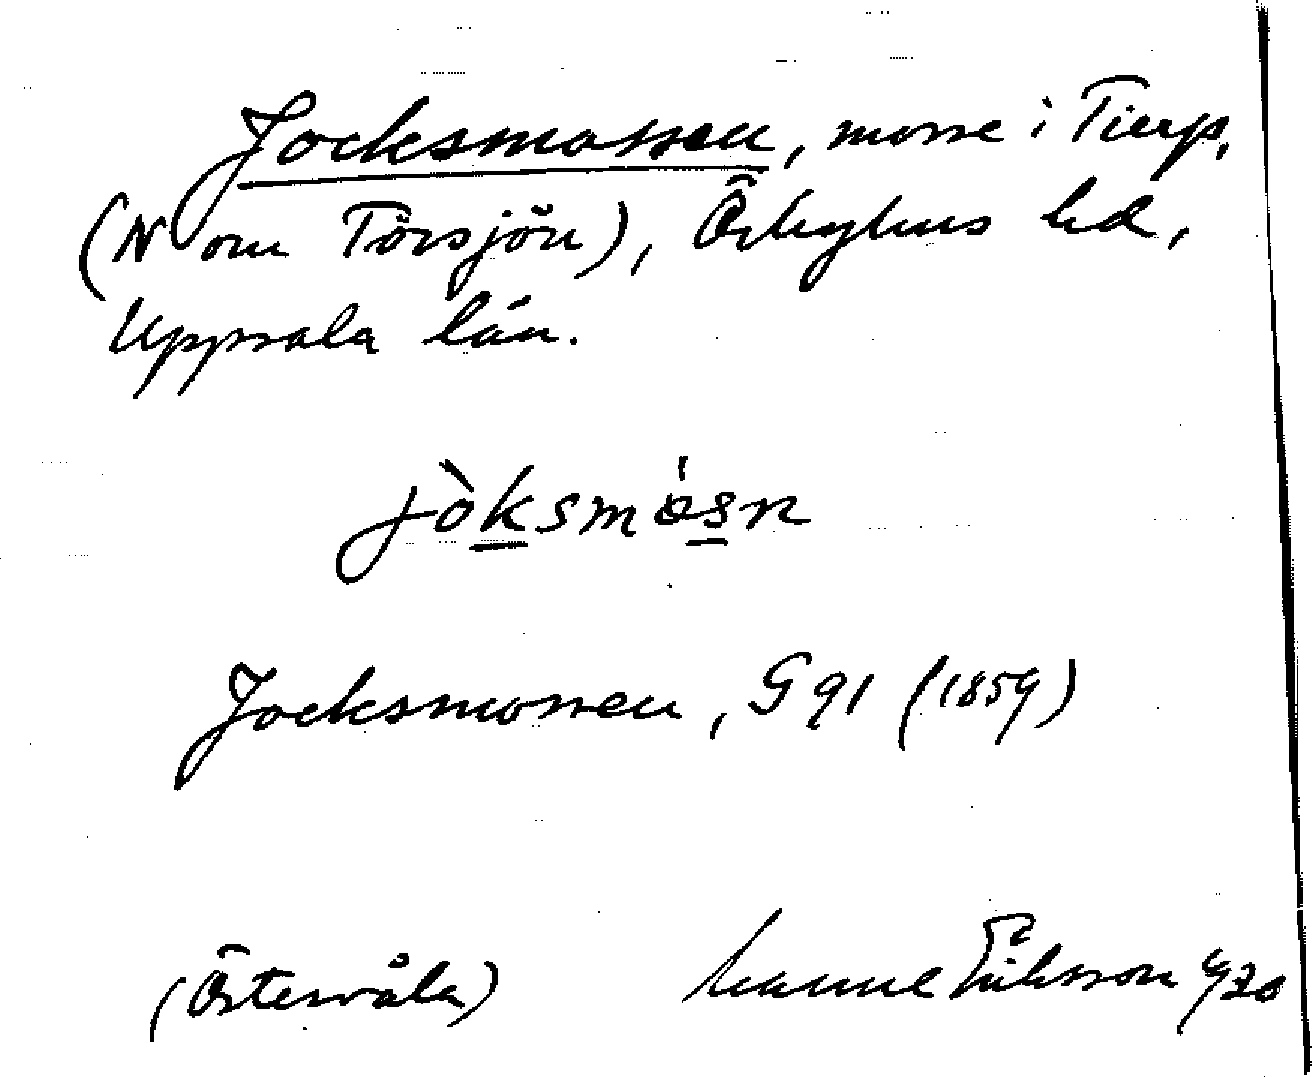 Jocksmossen, mosse i Tierp,
(N om Törsjön), Örbyhus hd,
Uppsala län.
jòksmósn
Jocksmossen, G 91 (1859)
(Östervåla) Manne Eriksson